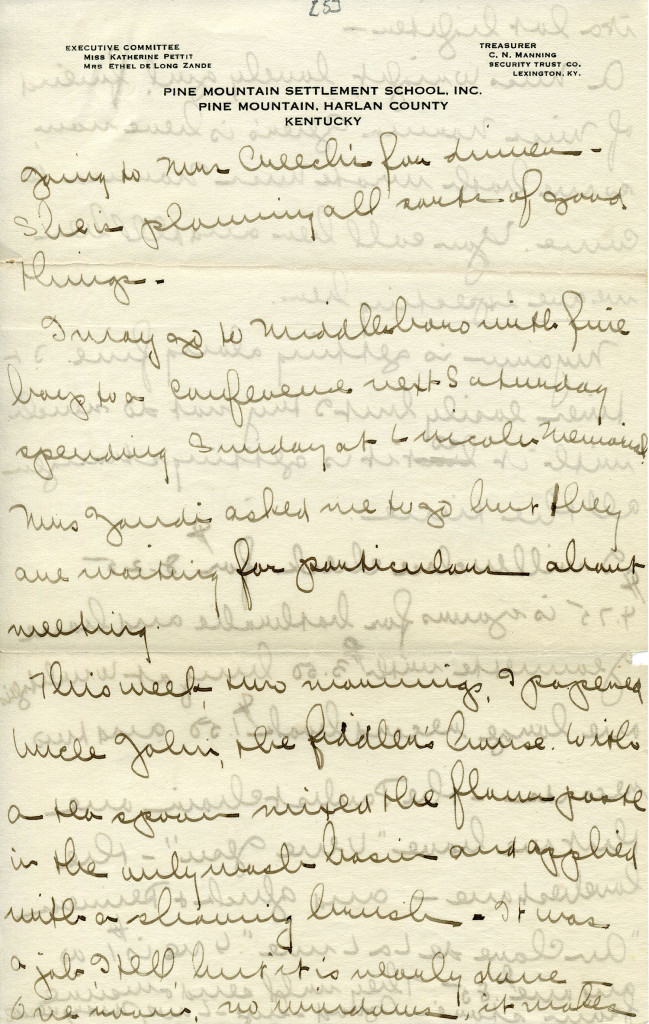 [53]
EXECUTIVE COMMITTEE
MISS KATHERINE PETTIT
MRS ETHEL DE LONG ZANDE
TREASURER
C. N. MANNING
SECURITY TRUST CO.
LEXINGTON, KY.
PINE MOUNTAIN SETTLEMENT SCHOOL, INC.
PINE MOUNTAIN, HARLAN COUNTY
KENTUCKY
going to Mrs Creech's for dinner -
She is planning all sorts of good
things. -
I may go to Middlesboro with five
boys to a conference next Saturday
spending Sunday at Lincoln Memorial.
Mrs Zande asked me to go but they
are waiting for particulars about
meeting.
This week, two mornings, I papered
Uncle John, the fiddler's house. With
a tea spoon mixed the flour paste
in the only wash basin and applied
with a shaving brush - It was
a job, I tell, but it is nearly done -
One room, no windows, it makes